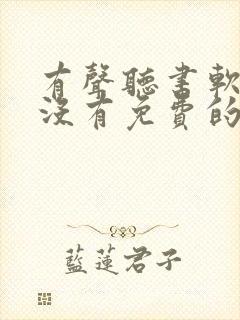 有聲聽書軟
沒有免費的
藍蓮君子